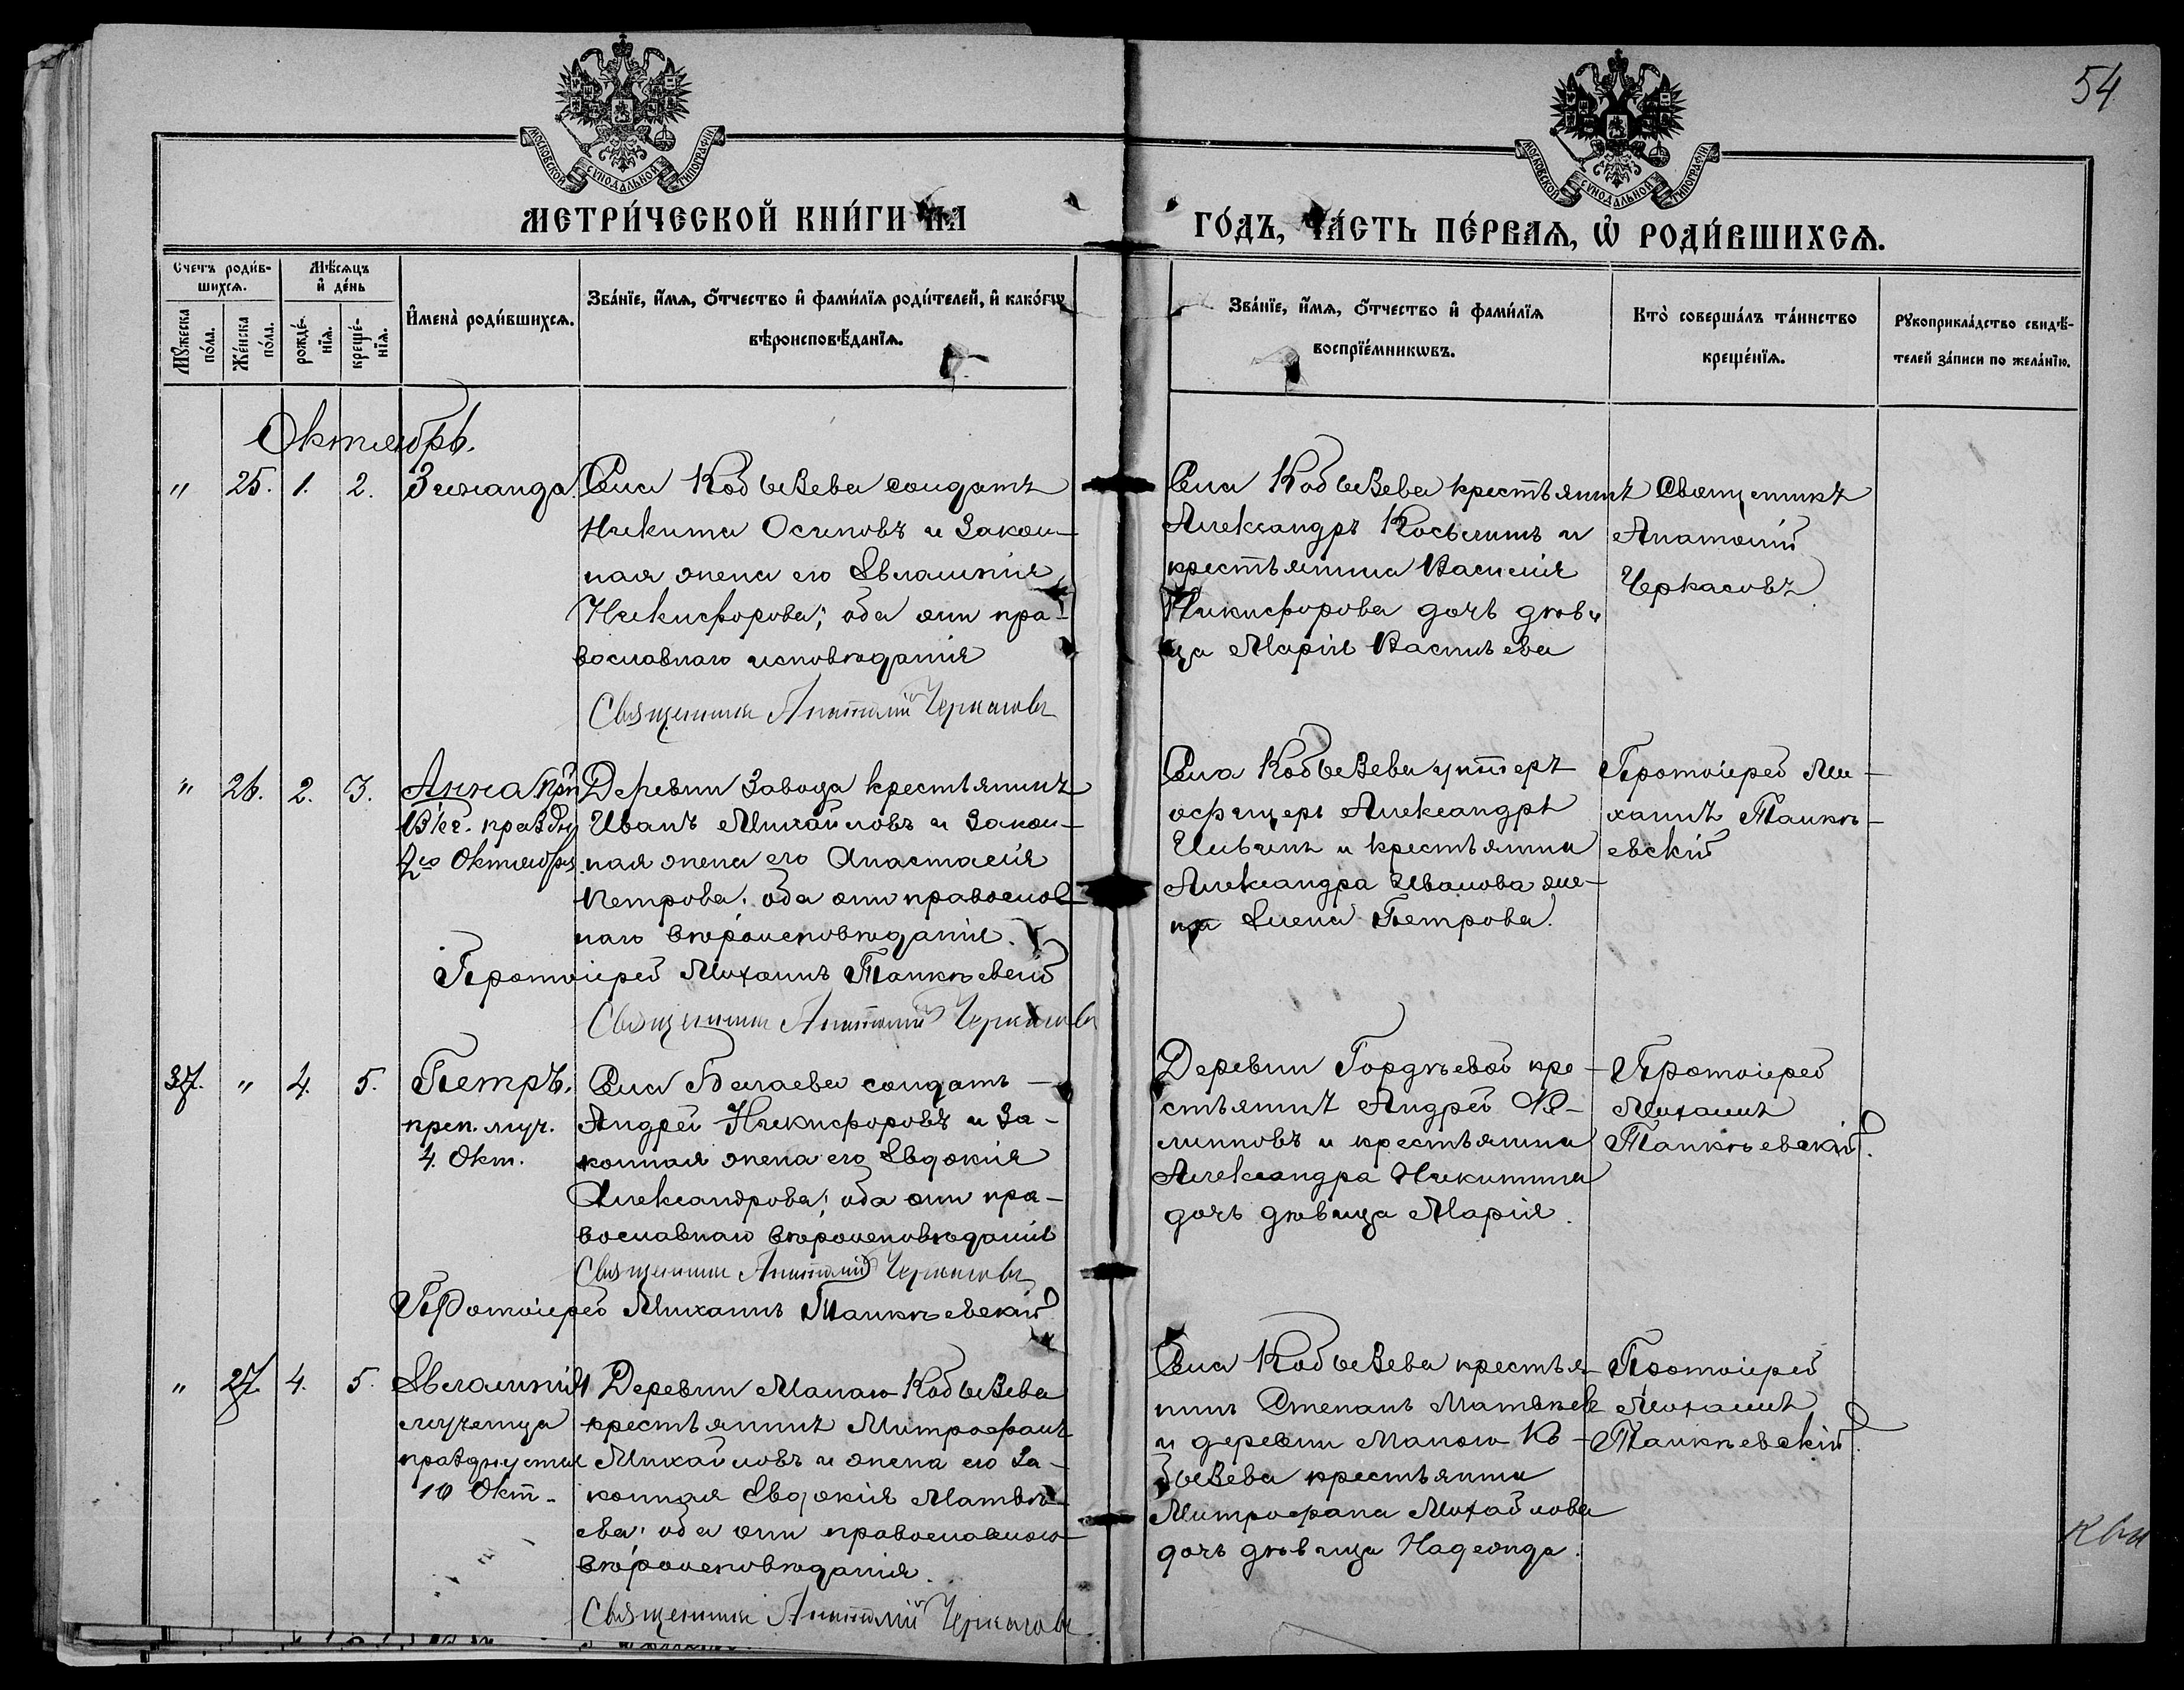 54
МОСКОВСКОЙ СѴНОДАЛЬНОЙ ТИПОГРАФІИ
МОСКОВСКОЙ СѴНОДАЛЬНОЙ ТИПОГРАФІИ
МЕТРИ́ЧЕСКОЙ КНИ́ГИ НА
ГО́ДЪ, ЧА́СТЬ ПЕ́РВАѦ, Ѡ РОДИ́ВШИХСѦ.
Счетъ роди́в-
шихсѧ.
Мѣсѧцъ
и де́нь
Мꙋжеска по́ла.
Же́нска по́ла.
рожде́-
нїѧ.
креще́-
нїѧ.
Имена̀ роди́вшихсѧ.
Зва́нїе, и́мѧ, о́тчество и фами́лїѧ роди́телей, и како́гѡ
вѣроисповѣ́данїѧ.
Зва́нїе, и́мѧ, о́тчество и фами́лїѧ
воспрїе́мникѡвъ.
Кто̀ соверша́лъ та́инство
креще́нїѧ.
Рꙋкоприкла́дство свидѣ́-
телей за́писи по жела́нїю.
Октябрь.
" 25. 1. 2. Зинаида.
Села Кобызева солдатъ
Никита Осиповъ и закон-
ная жена его Евлампія
Никифорова; оба они пра-
вославнаго исповѣданія
Священникъ Анатолій Черкасовъ
Села Кобызева крестьянинъ
Александръ Косьминъ и
крестьянина Василія
Никифорова дочь дѣви
ца Марія Васильева
Священникъ
Анатолій
Черкасовъ
" 26. 2. 3. Анна
праздну
2го Октября
Деревни Завода крестьянинъ
Иванъ Михайловъ и закон-
ная жена его Анастасія
Петрова; оба они православ
наго вѣроисповѣданія.
Протоіерей Михаилъ
Священникъ Анатолій Черкасовъ
Села Кобызева унтеръ
офицеръ Александръ
и крестьянина
Александра Иванова же-
на Елена Петрова.
Протоіерей Ми-
хаилъ
37. " 4. 5. Петръ.
преп. муч.
4. Окт.
Села солдатъ
Андрей Никифоровъ и за-
конная жена его Евдокія
Александрова; оба они пра-
вославнаго вѣроисповѣданія
Священникъ Анатолій Черкасовъ
Протоіерей Михаилъ
Деревни Гордѣевой кре-
стьянинъ Андрей
и крестьянина
Александра Никитина
дочь дѣвица Марія.
Протоіерей
Михаилъ
" 27. 4. 5. Евлампія
мученица
празднуется
10 Окт.
Деревни Малаго Кобызева
крестьянинъ Митрофанъ
Михайловъ и жена его за-
конная Евдокія Матвѣ-
ева; оба они православнаго
вѣроисповѣданія.
Священникъ Анатолій Черкасовъ
Села Кобызева крестья-
нинъ Степанъ Матвѣев
и деревни Малаго Ко-
бызева крестьянина
Митрофана Михайлова
дочь дѣвица Надежда.
Протоіерей
Михаилъ